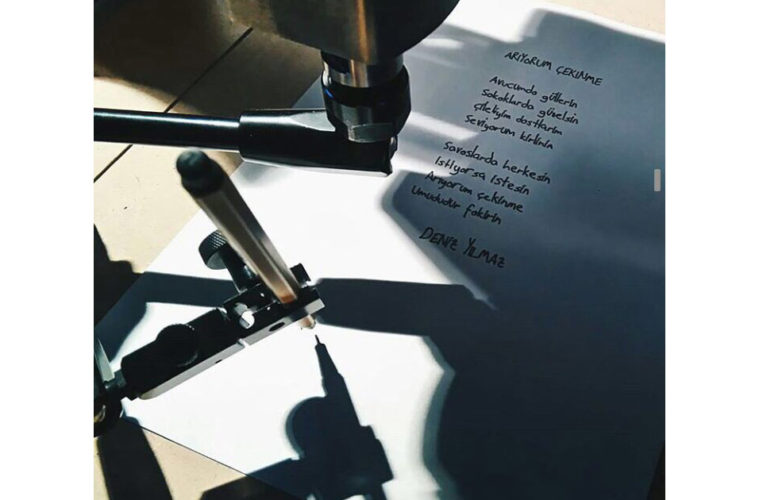 ARIYORUM ÇEKINME
Avucumda güllerin
Sokaklarda güzelsin
Çilekiyim dostların
Seviyorum kirlinin
Savaslarda herkesin
Istiyorsa istesin
Arıyorum çekinme
Umududur fakirin
DENIZ YILMAZ